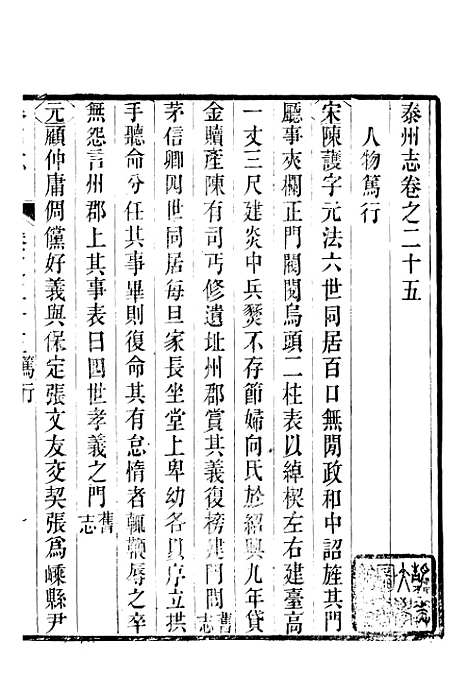 泰州志卷之二十五
人物篤行
宋陳護字元法六世同居百口無閒政和中詔旌其門
廳事夾欄正門閥閱烏頭二柱表以綽楔左右建臺高
一丈三尺建炎中兵燹不存節婦向氏於紹興九年貸
金贖產陳有司丐修遺址州郡賞其義復榜建門閭舊志
茅信卿四世同居每旦家長坐堂上卑幼各具序立拱
手聽命分任其事畢則復命其有怠惰者輒顰辱之卒
無怨言州郡上其事表曰四世孝義之門舊志
元顧仲庸倜儻好義與保定張文友交契張爲嵊縣尹
篤行